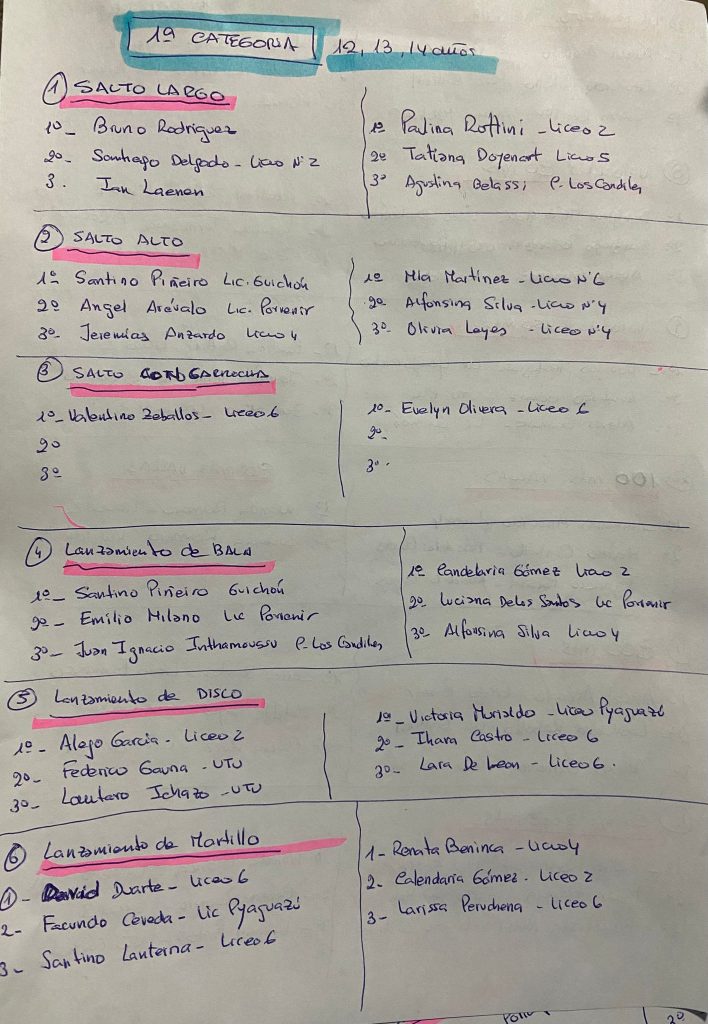 1º CATEGORIA 12, 13, 14 años
1 SALTO LARGO
1º_ Bruno Rodriguez
2º- Santiago Delgado - Liceo Nº2
3. Ian Laenen
1º Paulina Rottini - Liceo 2
2º Tatiana Doyenart Liceo 5
3º Agustina Belassi P. Los Candiles
2 SALTO ALTO
1º Santino Piñeiro Lic. Guichón
2º Angel Arévalo Lic. Porvenir
3º Jeremías Anzardo Liceo 4
1º Mia Martinez - Liceo Nº6
2º Alfonsina Silva - Liceo Nº4
3º Olivia Leyes - Liceo Nº4
3 SALTO CON GARROCHA
1º_ Valentino Zeballos - Liceo 6
2º
3º
1º- Evelyn Olivera - Liceo 6
2º-
3º-
4 Lanzamiento de BALA
1º_ Santino Piñeiro Guichón
2º_ Emilio Milano Lic Porvenir
3º_ Juan Ignacio Inthamoussu P. Los Candiles
1º Candelaria Gómez Liceo 2
2º Luciana Delos Santos Lic Porvenir
3º Alfonsina Silva Liceo 4
5 Lanzamiento de DISCO
1º_ Alejo Garcia - Liceo 2
2º- Federico Gauna - UTU
3º- Lautaro Ichazo - UTU
1º_ Victoria Murialdo - Liceo Pyaguazú
2º- Ihara Castro - Liceo 6
3º- Lara De Leon - Liceo 6.
6 Lanzamiento de Martillo
1- David Duarte - Liceo 6
2- Facundo Ceveda - Lic Pyaguazú
3- Santino Lanterna - Liceo 6
1- Renata Beninca - Liceo 4
2- Calendaria Gómez - Liceo 2
3- Larissa Peruchena - Liceo 6
2º